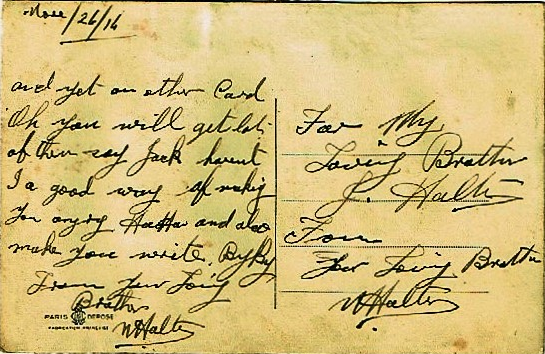 Nov/26/16
and yet an other Card
Oh you will get lots
of them say Jack havent
I a good way of making
you angry HaHa and also
make you write. By By
From your Loving
Brother
W Halter
PARIS DEPOSE
FABRICATION FRANCAISE
For My
Loving Brother
J. Halter
From
Your Loving Brother
W Halter